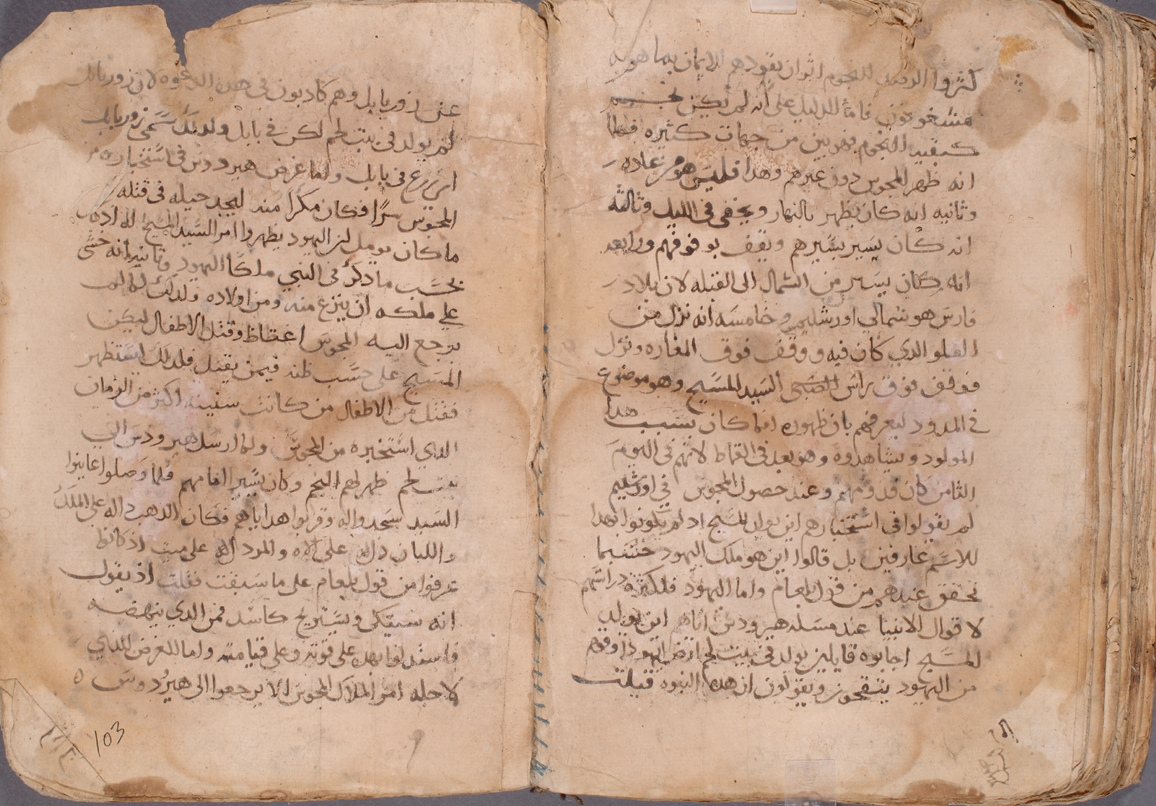 كثروا الرصد للنجوم اثر ان يقودهم للايمان بما هو به
مشغوفون فاما الدليل على انه لم يكن نجمه
كبقية النجوم فهو بين من جهات كثيره فمنها
انه ظهر للمجوس دون غيرهم وهذا فليس هو من عاده
وثانيه انه كان يظهر بالنهار ويخفى في الليل وثالثه
انه كان يسير بسيرهم ويقف بوقوفهم ورابعه
انه كان يسير من الشمال الى القبله لان بلاد
فارس هو شمالي اورشليم وخامسه انه نزل من
العلو الدي كان فيه ووقف فوق المغاره ونزل
فوقف فوق راس الصبي السيد المسيح وهو موضوع
في المدود ليعرفهم بان ظهوره انما كان بسبب هدا
المولود وشاهدوه وهو بعد في القماط لانهم في اليوم
الثامن كان قدومهم وعند حصول المجوس في اورشليم
لم يقولوا في استخبارهم اين يولد المسيح اد لم يكونوا لهدا
للاسم عارفين بل قالوا اين هو ملك اليهود حسبما
تحقق عندهم من قول بلعام واما اليهود فلكثرة دراستهم
لاقوال الانبيا عند مسله هيرودس اياهم اين يولد
المسيح اجابوه قايلين يولد في بيت لحم ارض يهودا وقوم
من اليهود يتقحون ويقولون ان هذه النبوه قيلت
عن زوربابل وهم كادبون في هده الدعوه لان زوربابل
لم يولد في بيت لحم لكن في بابل ولدلك سمي زوربابل
اي زرع في بابل واما غرض هيرودس في استخباره من
المجوس سرا فكان مكرا منه ليجد حيله في قتله
ما كان يومل ان اليهود يظهروا امر السيد المسيح لارادة
بحسب ما دكر في النبي ملكا اليهود وثانيه انه خشي
على ملكه ان ينزع منه ومن اولاده ولدلك لما لم
يرجع اليه المجوس اغتاظ وقتل الاطفال ليكن
المسيح على حسب ظنه فيمن يقتل فلدلك استظهر
فقتل من الاطفال من كانت سنينه اكثر من الزمان
الدي استخبره من المجوس ولما ارسل هيرودس الى
بيت لحم ظهر لهم النجم وكان يسير امامهم فلما وصلوا عاينوا
السيد سجدوا له وقربوا هداياهم فكان الدهب داله على الملك
واللبان داله على الاه والمر داله على ميت اد كانوا
عرفوا من قول بلعام على ما سبقت فقلت اذ يقول
انه سيتكى ويستريح كاسد فمن الدي ينهضه
فاستدلوا بهدا على قوته وعلى قيامته واما الغرض الدي
لاجله امر الملاك المجوس الا يرجعوا الى هيرودس ه
103